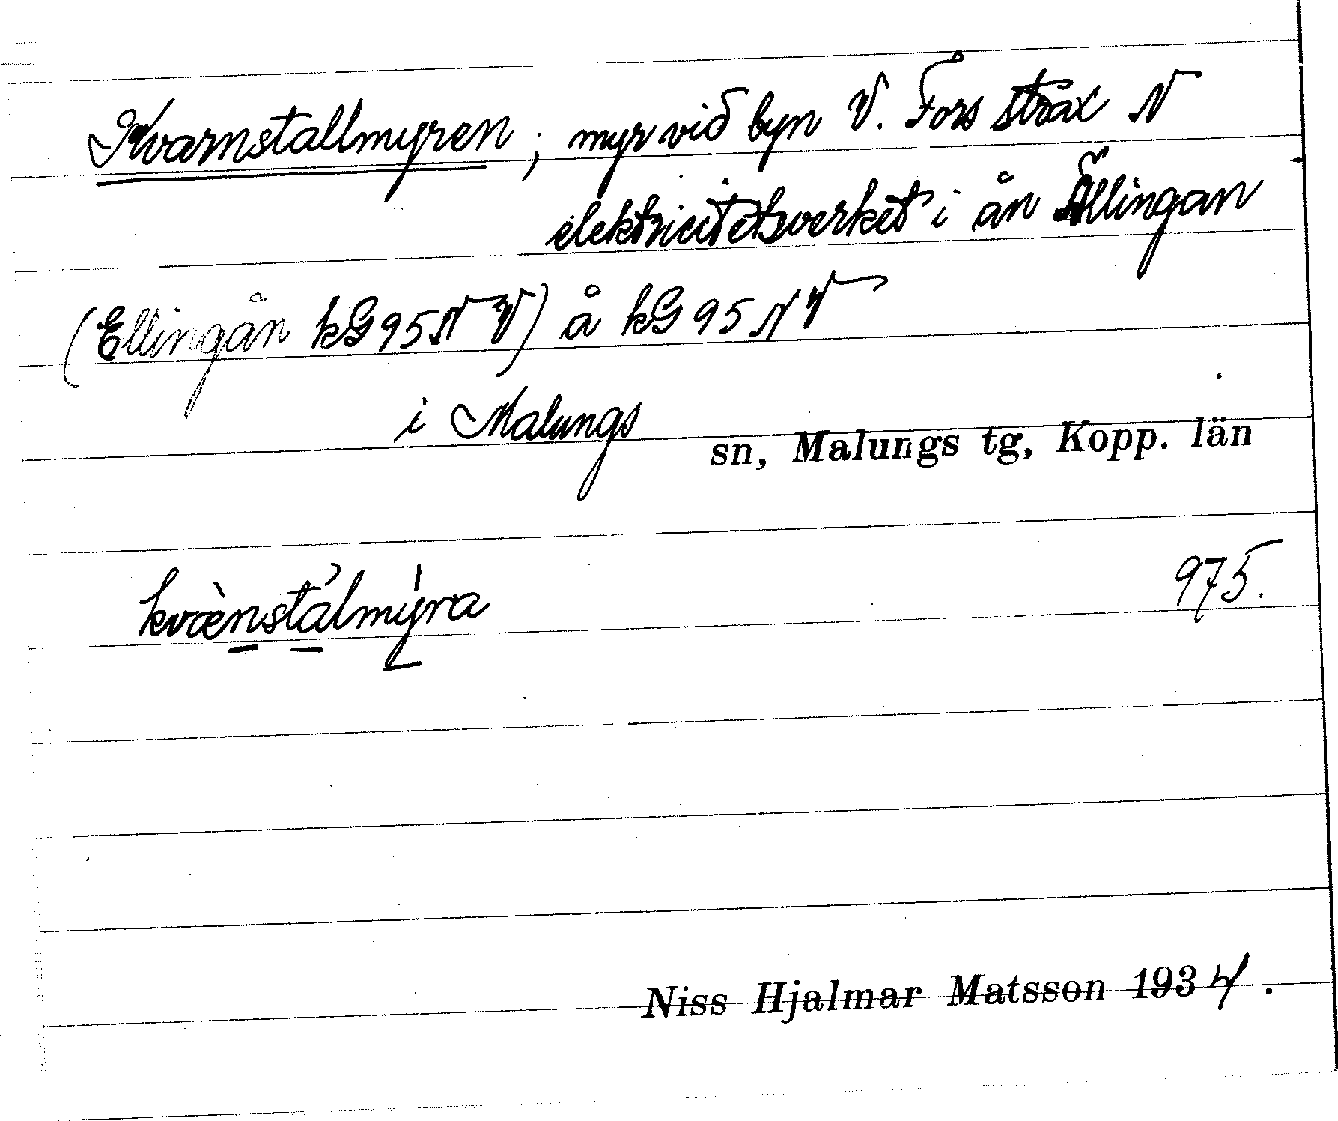 Kvarnstallmyren; myr vid byn V. Fors strax N
elektricitetsverket i ån Ällingan
(Ellingån kG95NV) å kG95NV
i Malungs sn, Malungs tg, Kopp. län
kvænstálmýra 975.
Niss Hjalmar Matsson 1934.